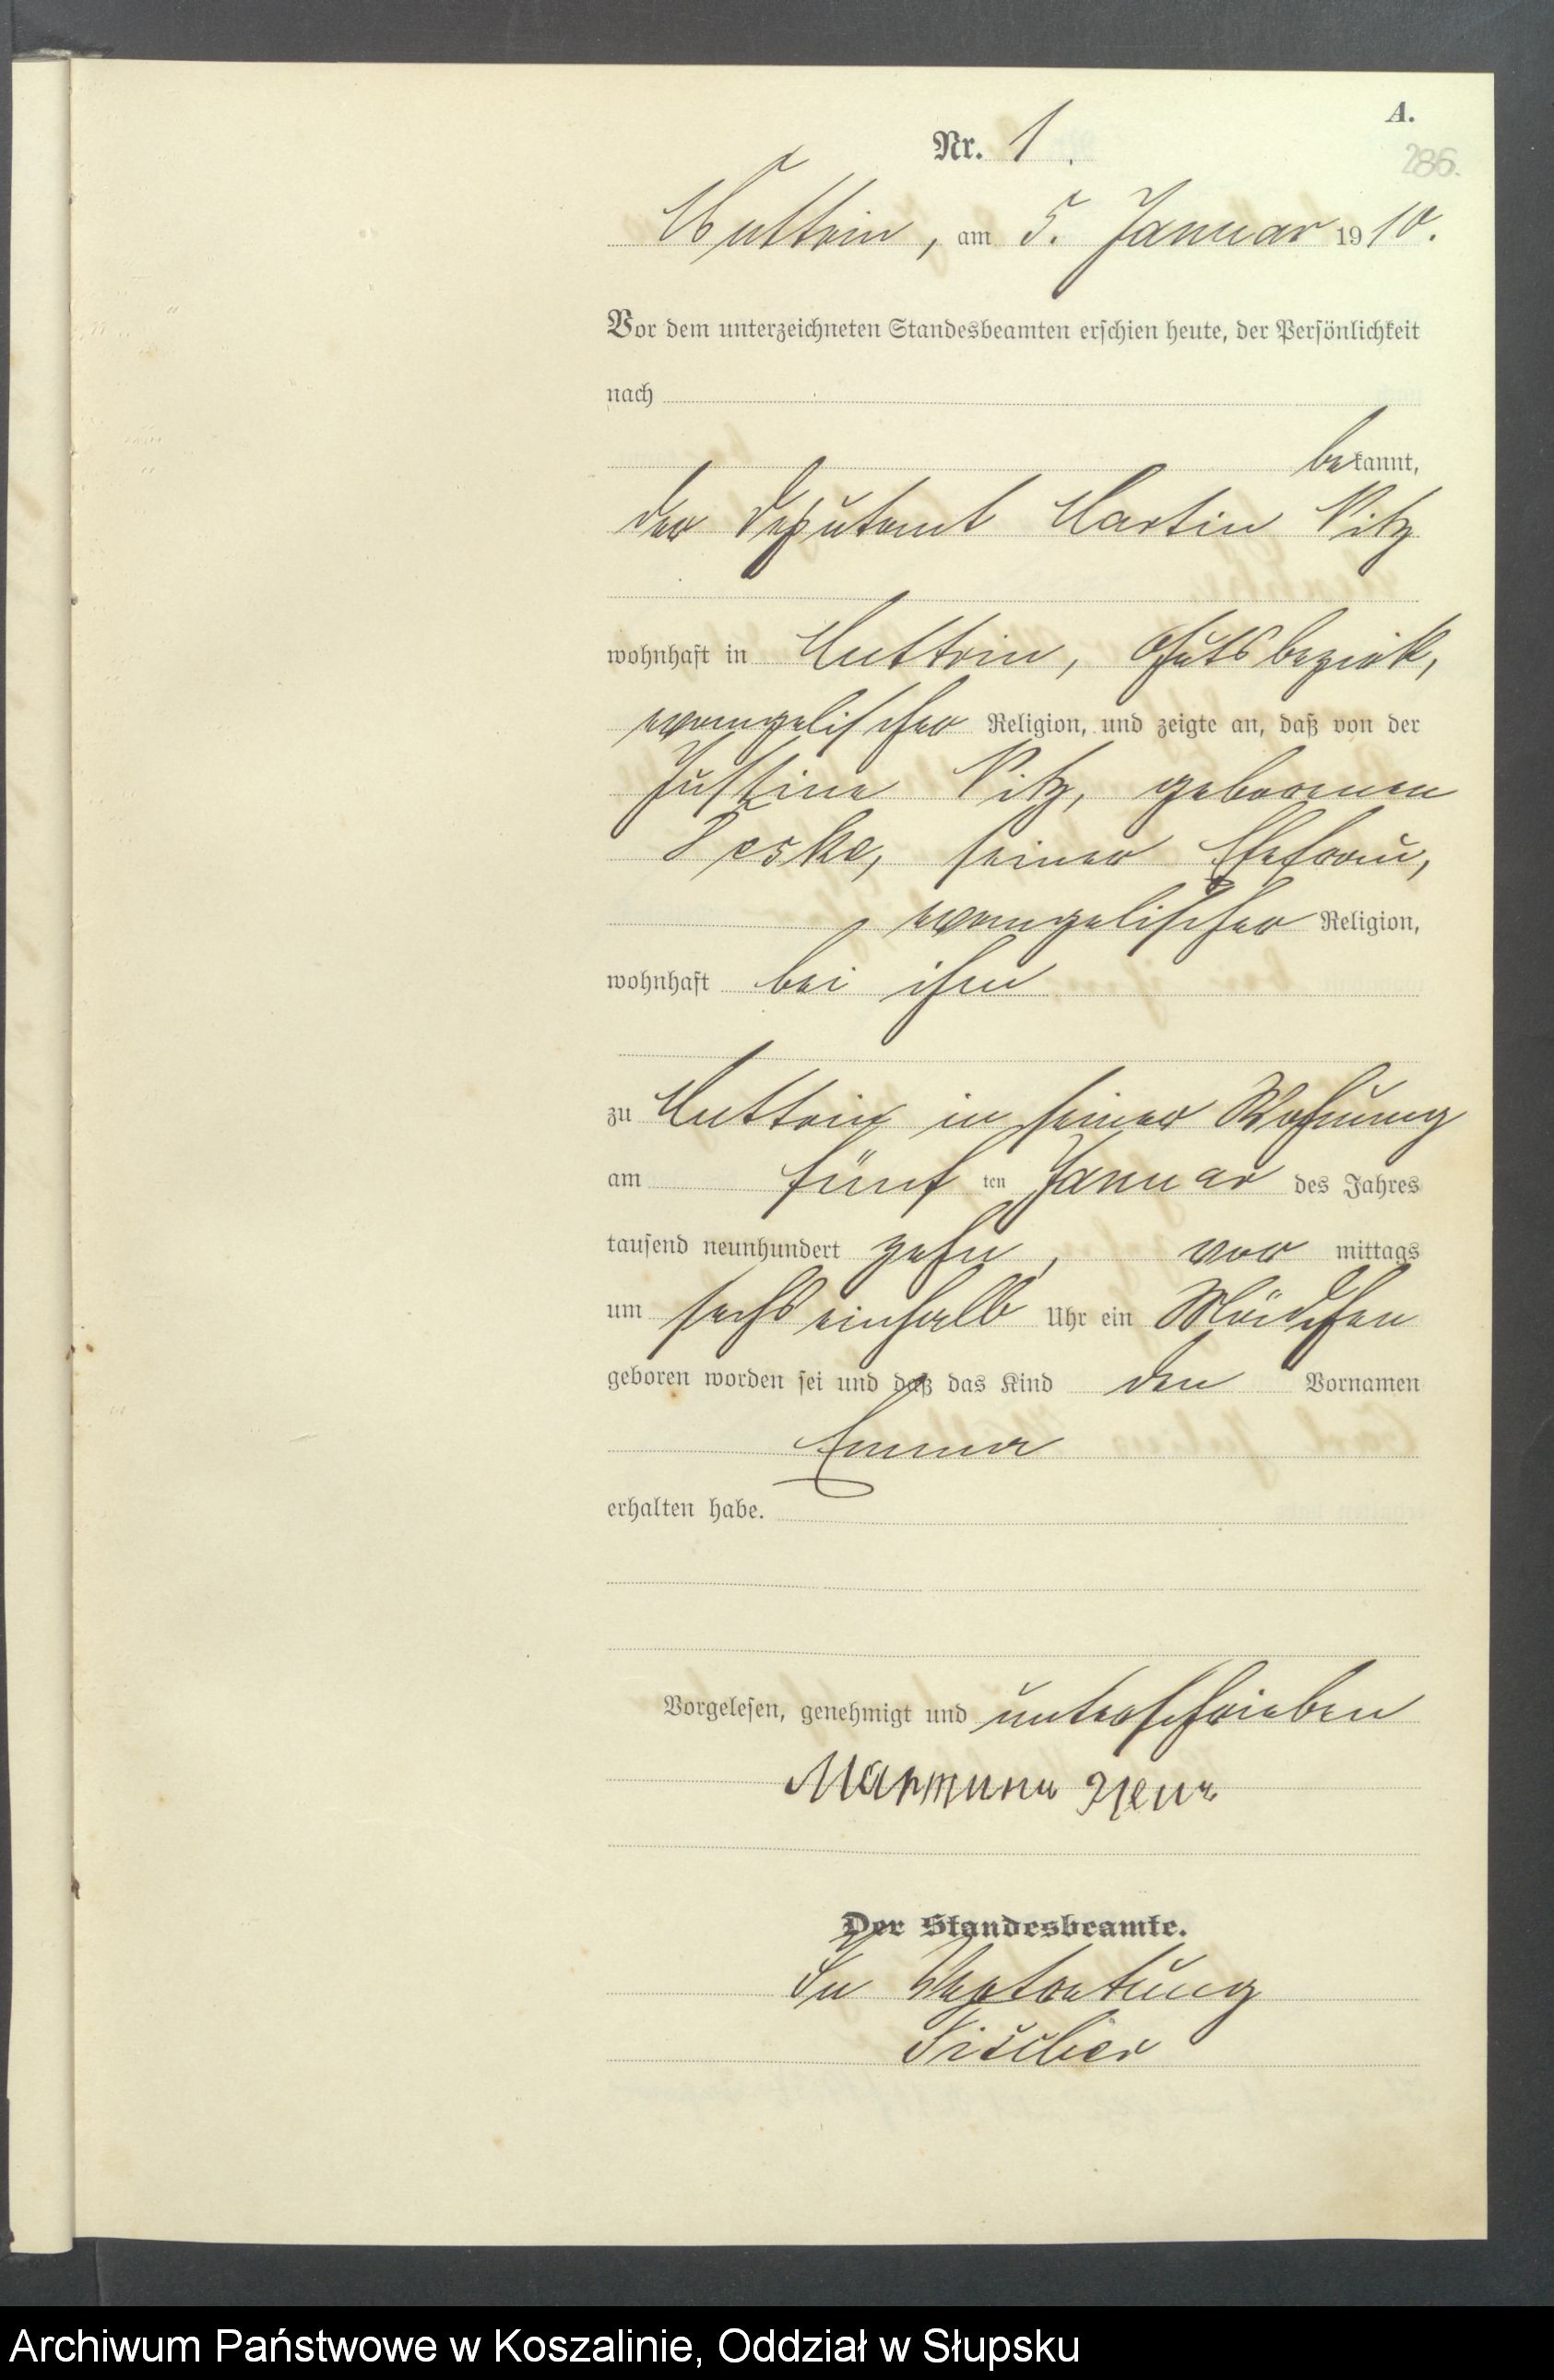 A.
Nr. 1.
286.
Muttrin, am 5. Januar 1910.
Vor dem unterzeichneten Standesbeamten erschien heute, der Persönlichkeit
nach
bekannt,
der Deputant Martin Pitz
wohnhaft in Muttrin, Gutsbezirk,
evangelischer Religion, und zeigte an, daß von der
Justine Pitz, geborenen
Teske, seiner Ehefrau,
evangelischer Religion,
wohnhaft bei ihm
zu Muttrin in seiner Wohnung
am fünf ten Januar des Jahres
tausend neunhundert zehn, vor mittags
um sechs einhalb Uhr ein Mädchen
geboren worden sei und daß das Kind den Vornamen
Emma
erhalten habe.
Vorgelesen, genehmigt und unterschrieben
Мартинъ
Der Standesbeamte.
In Vertretung
Fischer
Archiwum Państwowe w Koszalinie, Oddział w Słupsku